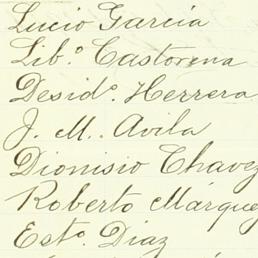 Lucio García
Lib.º Castorena
Desid.º Herrera
J. M. Avila
Dionisio Chávez
Roberto Márquez
Est.º Díaz